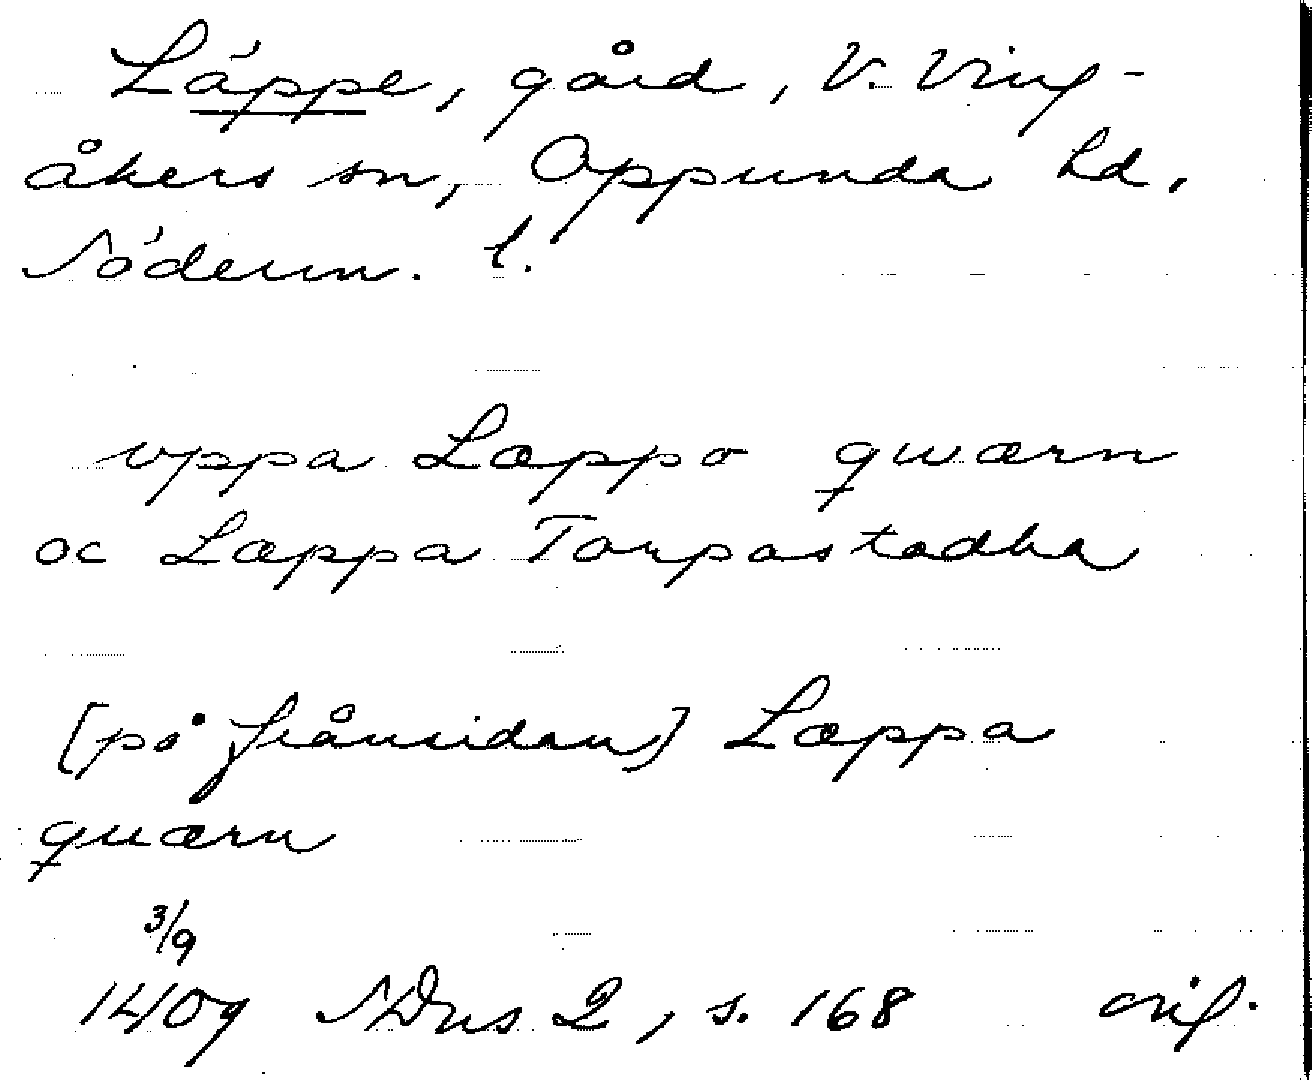 Läppe, gård, V. Ving-
åkers sn, Oppunda hd,
Söderm. l.
vppa Læppo qwærn
oc Læppa Torpastadha
[på frånsidan] Læppa
quærn
3/9
1409 SDns 2, s. 168 orig.